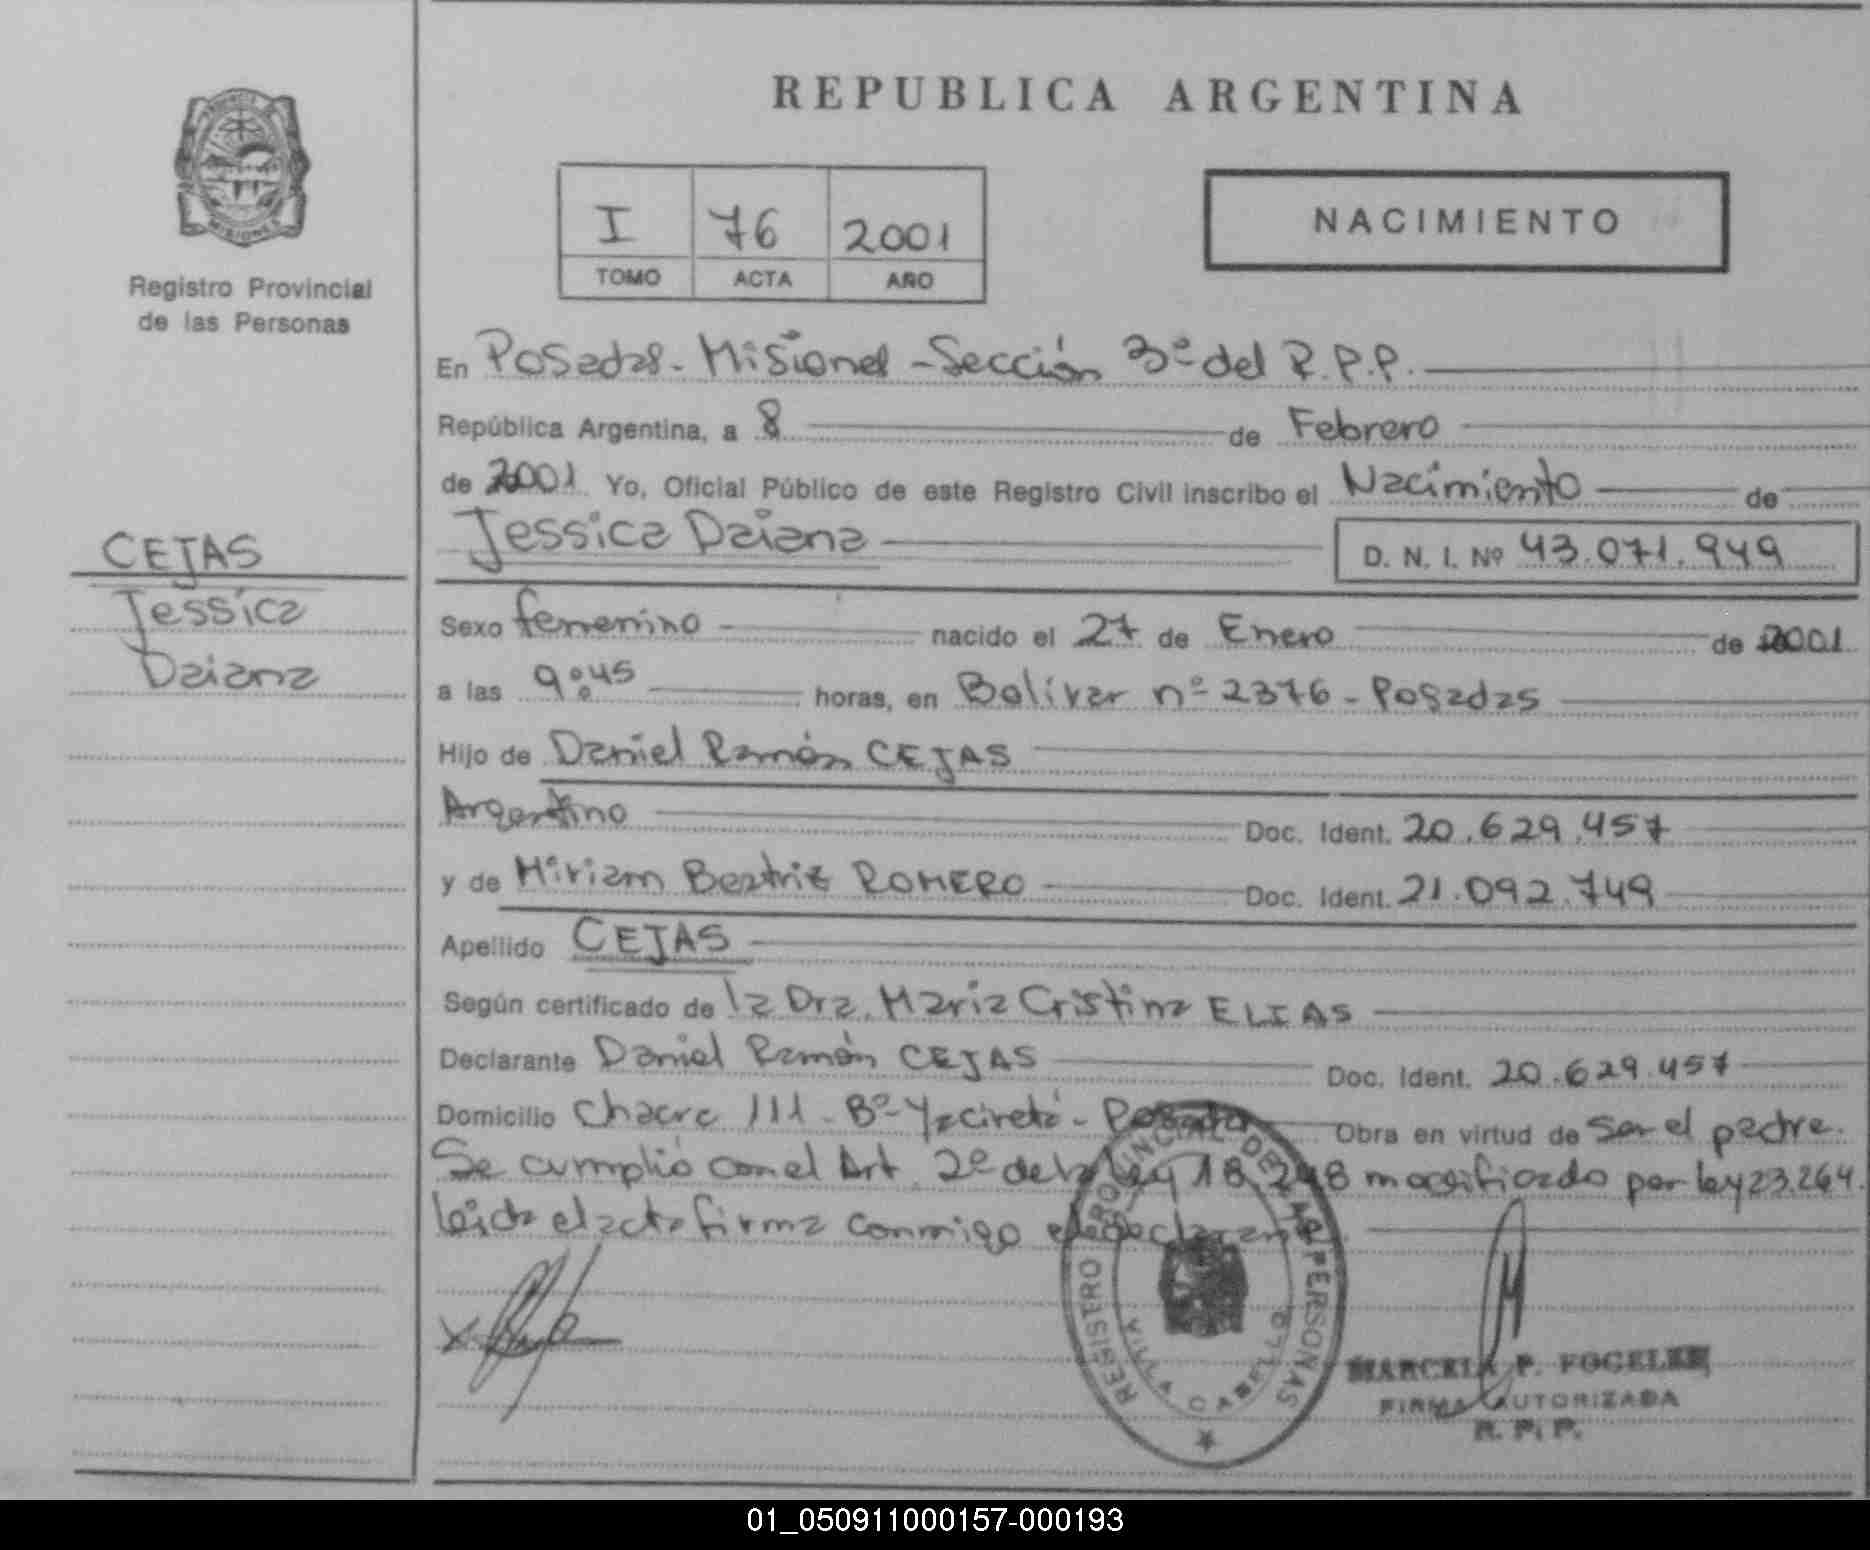 REPUBLICA ARGENTINA
PROVINCIA DE MISIONES
Registro Provincial
de las Personas
I 76 2001
TOMO ACTA AÑO
NACIMIENTO
En Posadas - Misiones - Sección 3º del R.P.P.
República Argentina, a 8 de Febrero
de 2001 Yo, Oficial Público de este Registro Civil inscribo el Nacimiento de
Jessica Daiana D. N. I. Nº 43.071.949
CEJAS
Jessica
Daiana
Sexo femenino nacido el 27 de Enero de 2001
a las 9:45 horas, en Bolívar nº 2376 - Posadas
Hijo de Daniel Ramón CEJAS
Argentino Doc. Ident. 20.629.457
y de Miriam Beatriz ROMERO Doc. Ident. 21.092.749
Apellido CEJAS
Según certificado de la Dra. Maria Cristina ELIAS
Declarante Daniel Ramón CEJAS Doc. Ident. 20.629.457
Domicilio Chacra 111 - Bº Yaciretá - Posadas Obra en virtud de ser el padre.
Se cumplió con el Art. 2º de la ley 18.248 modificado por ley 23.264.
leída el acta firma conmigo el declarante.
REGISTRO PROVINCIAL DE LAS PERSONAS
VILLA CABELLO
MARCELA P. FOGELER
FIRMA AUTORIZADA
R. P. P.
01_050911000157-000193